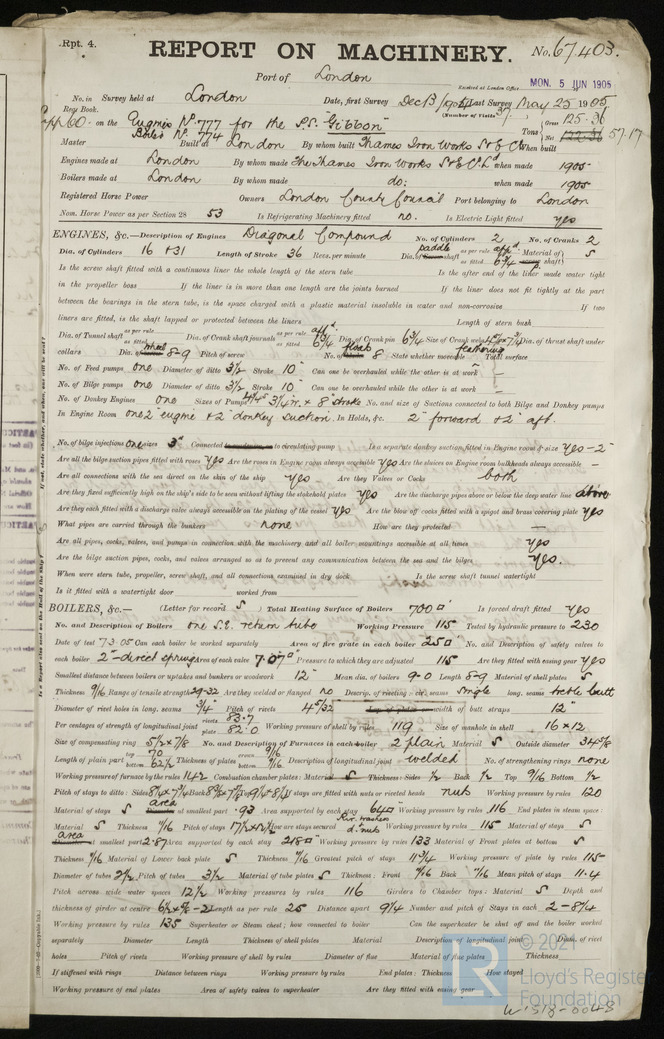 Rpt. 4.
REPORT ON MACHINERY.
No. 67403.
Port of London
Received at London Office MON. 5 JUN 1905
No. in Survey held at London Date, first Survey Dec 13/1904 Last Survey May 25 1905
Reg. Book. (Number of Visits 37)
on the Engines No. 777 for the P.S. "Gibbon" Tons Gross 125.36
Boiler No. 774 Net 57.17
Master Built at London By whom built Thames Iron Works When built
Engines made at London By whom made The Thames Iron Works when made 1905
Boilers made at London By whom made do: when made 1905
Registered Horse Power Owners London County Council Port belonging to London
Nom. Horse Power as per Section 28 53 Is Refrigerating Machinery fitted no. Is Electric Light fitted yes
ENGINES, &c.—Description of Engines Diagonal Compound No. of Cylinders 2 No. of Cranks 2
Dia. of Cylinders 16 & 31 Length of Stroke 36 Revs. per minute Dia. of paddle shaft as per rule app'd as fitted 6 3/4 Material of shaft S
Is the screw shaft fitted with a continuous liner the whole length of the stern tube Is the after end of the liner made water tight
in the propeller boss If the liner is in more than one length are the joints burned If the liner does not fit tightly at the part
between the bearings in the stern tube, is the space charged with a plastic material insoluble in water and non-corrosive If two
liners are fitted, is the shaft lapped or protected between the liners Length of stern bush
Dia. of Tunnel shaft as per rule as fitted Dia. of Crank shaft journals as per rule app'd as fitted 6 3/4 Dia. of Crank pin 6 3/4 Size of Crank webs Dia. of thrust shaft under
collars Dia. of wheel 8-9 Pitch of screw No. of floats 8 State whether moveable feathering Total surface
No. of Feed pumps one Diameter of ditto 3 1/2 Stroke 10" Can one be overhauled while the other is at work
No. of Bilge pumps one Diameter of ditto 3 1/2 Stroke 10" Can one be overhauled while the other is at work
No. of Donkey Engines one Sizes of Pumps No. and size of Suctions connected to both Bilge and Donkey pumps
In Engine Room one 2" engine & 2" donkey suction. In Holds, &c. 2" forward & 2" aft.
No. of bilge injections one sizes 3" Connected to circulating pump Is a separate donkey suction fitted in Engine room & size yes - 2"
Are all the bilge suction pipes fitted with roses yes Are the roses in Engine room always accessible yes Are the sluices on Engine room bulkheads always accessible —
Are all connections with the sea direct on the skin of the ship yes Are they Valves or Cocks both
Are they fixed sufficiently high on the ship's side to be seen without lifting the stokehold plates yes Are the discharge pipes above or below the deep water line above
Are they each fitted with a discharge valve always accessible on the plating of the vessel yes Are the blow off cocks fitted with a spigot and brass covering plate yes
What pipes are carried through the bunkers none How are they protected —
Are all pipes, cocks, valves, and pumps in connection with the machinery and all boiler mountings accessible at all times yes
Are the bilge suction pipes, cocks, and valves arranged so as to prevent any communication between the sea and the bilges yes.
When were stern tube, propeller, screw shaft, and all connections examined in dry dock Is the screw shaft tunnel watertight
Is it fitted with a watertight door worked from
BOILERS, &c.— (Letter for record S) Total Heating Surface of Boilers 700 □' Is forced draft fitted yes
No. and Description of Boilers one S.E. return tube Working Pressure 115 Tested by hydraulic pressure to 230
Date of test 7.3.05 Can each boiler be worked separately Area of fire grate in each boiler 25 □' No. and Description of safety valves to
each boiler 2 - direct spring Area of each valve 7.07 □" Pressure to which they are adjusted 115 Are they fitted with easing gear yes
Smallest distance between boilers or uptakes and bunkers or woodwork 12" Mean dia. of boilers 9-0 Length 8-9 Material of shell plates S
Thickness 9/16 Range of tensile strength 29-32 Are they welded or flanged no Descrip. of riveting: cir. seams single long. seams treble butt
Diameter of rivet holes in long. seams 3/4" Pitch of rivets 4 5/32 width of butt straps 12"
Per centages of strength of longitudinal joint rivets 83.7 plate 82.0 Working pressure of shell by rules 119 Size of manhole in shell 16 x 12
Size of compensating ring 5 1/2 x 7/8 No. and Description of Furnaces in each boiler 2 plain Material S Outside diameter 34 5/8
Length of plain part top 70 bottom 62 1/2 Thickness of plates crown 9/16 bottom 9/16 Description of longitudinal joint welded No. of strengthening rings none
Working pressure of furnace by the rules 142 Combustion chamber plates: Material S Thickness: Sides 1/2 Back 1/2 Top 9/16 Bottom 1/2
Pitch of stays to ditto: Sides Back Top If stays are fitted with nuts or riveted heads nuts Working pressure by rules 120
Material of stays S area at smallest part .93 Area supported by each stay 64 □" Working pressure by rules 116 End plates in steam space
Material S Thickness 11/16 Pitch of stays How are stays secured d. nuts Working pressure by rules 115 Material of stays S
area at smallest part 2.87 Area supported by each stay 218 □" Working pressure by rules 133 Material of Front plates at bottom S
Thickness 11/16 Material of Lower back plate S Thickness 11/16 Greatest pitch of stays 11 3/4 Working pressure of plate by rules 115
Diameter of tubes 2 1/2 Pitch of tubes 3 1/2 Material of tube plates S Thickness: Front 11/16 Back 11/16 Mean pitch of stays 11.4
Pitch across wide water spaces 12 1/2 Working pressures by rules 116 Girders to Chamber tops: Material S Depth and
thickness of girder at centre Length as per rule 25 Distance apart 9 1/4 Number and pitch of Stays in each 2 - 8 1/4
Working pressure by rules 135 Superheater or Steam chest; how connected to boiler Can the superheater be shut off and the boiler worked
separately Diameter Length Thickness of shell plates Material Description of longitudinal joint Diam. of rivet
holes Pitch of rivets Working pressure of shell by rules Diameter of flue Material of flue plates Thickness
If stiffened with rings Distance between rings Working pressure by rules End plates: Thickness How stayed
Working pressure of end plates Area of safety valves to superheater Are they fitted with easing gear
© 2021
Lloyd's Register
Foundation
W518-0048